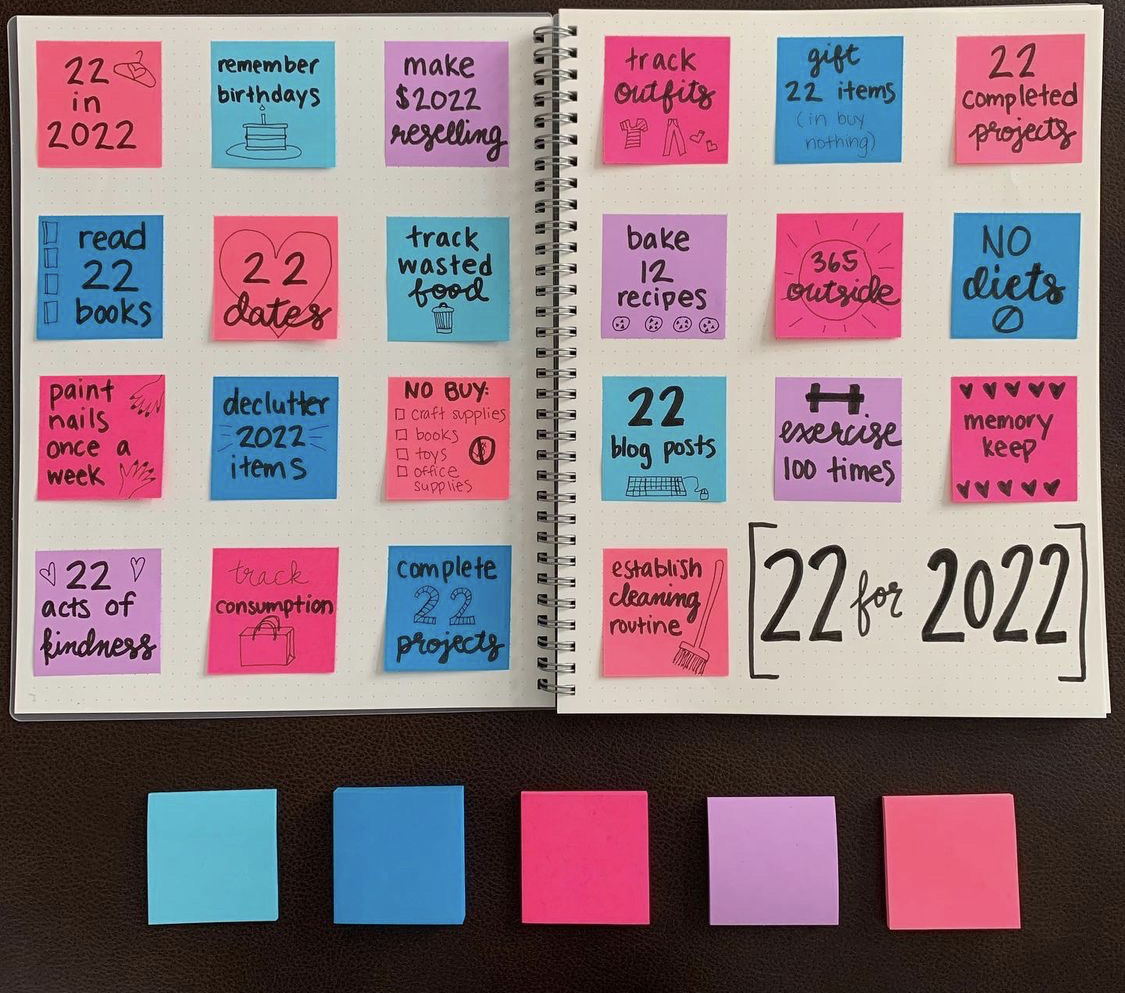 22
in
2022
remember
birthdays
make
$2022
reselling
read
22
books
22
dates
track
wasted
food
paint
nails
once a
week
declutter
2022
items
NO BUY:
craft supplies
books
toys
office
supplies
22
acts of
kindness
track
consumption
complete
22
projects
track
outfits
gift
22 items
(in buy
nothing)
22
completed
projects
bake
12
recipes
365
outside
NO
diets
22
blog posts
exercise
100 times
memory
keep
establish
cleaning
routine
22 for 2022